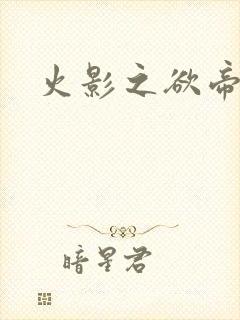 火影之欲帝
暗星君